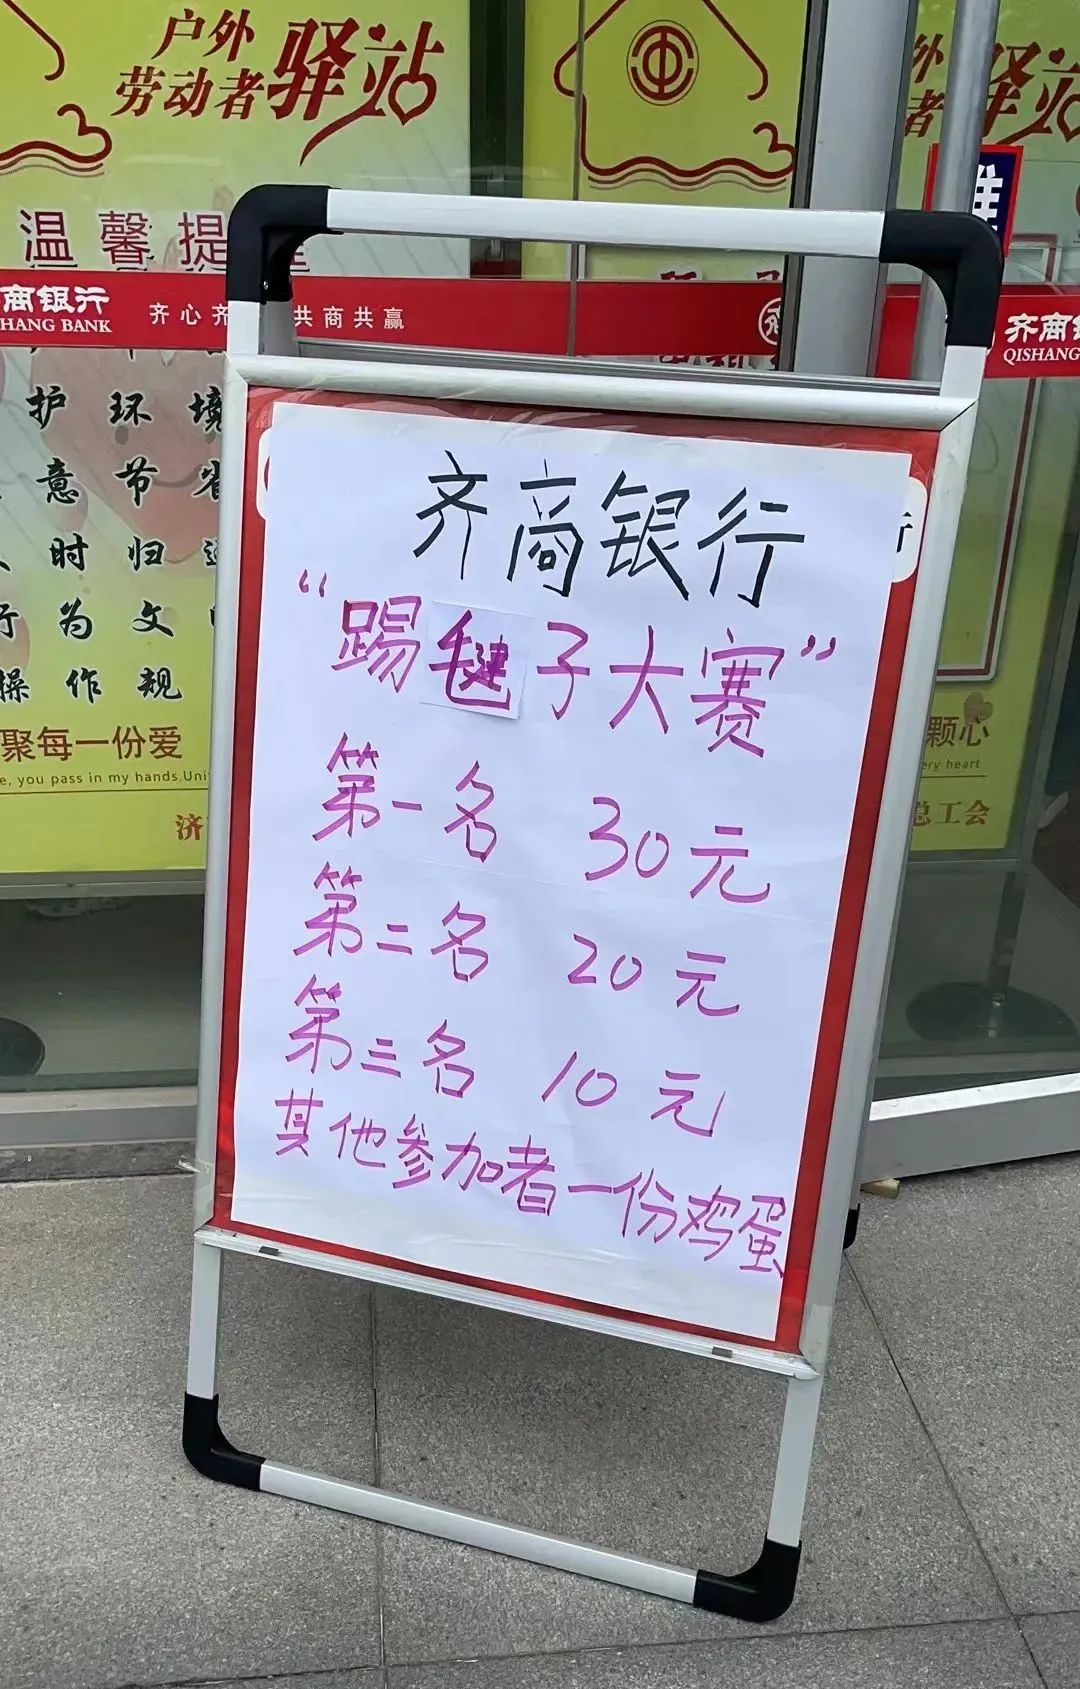 户外
劳动者驿站
温馨提
商银行
HANG BANK
齐心齐
共商共赢
护环境
意节省
时归
行为文
操作规
聚每一份爱
e, you pass in my hands.Uni
济
户外
者驿站
齐商
QISHANG
颗心
ery heart
总工会
齐商银行
“踢毽子大赛”
第一名 30元
第二名 20元
第三名 10元
其他参加者一份鸡蛋